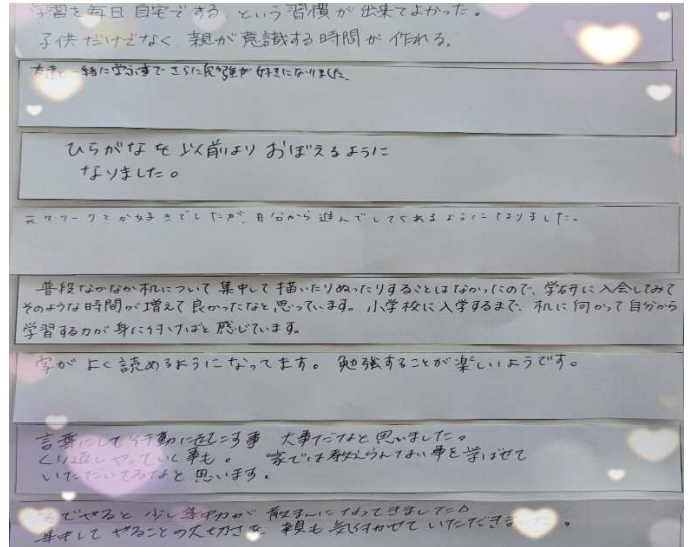 学習を毎日自宅でする、という習慣が出来てよかった。
子供だけでなく 親が意識する時間が作れる。
友達と一緒に学ぶ事でさらに勉強が好きになりました。
ひらがなを以前よりおぼえるように
なりました。
元々ワークとか好きでしたが、自分から進んでしてくれるようになりました。
普段なかなか机について集中して描いたりぬったりすることはなかったので、学研に入会してみて
そのような時間が増えて良かったなと思っています。小学校に入学するまで、机に向かって自分から
学習する力が身に付けばと感じています。
字がよく読めるようになってます。勉強することが楽しいようです。
言葉にして行動に起こす事 大事だなと思いました。
くり返しやっていく事も。 家では教えらんない事を学ばせて
いただいてるなと思います。
でやると少し集中力が散まんになってきました
集中してやることの大切さを 親も気付かせていただきました。